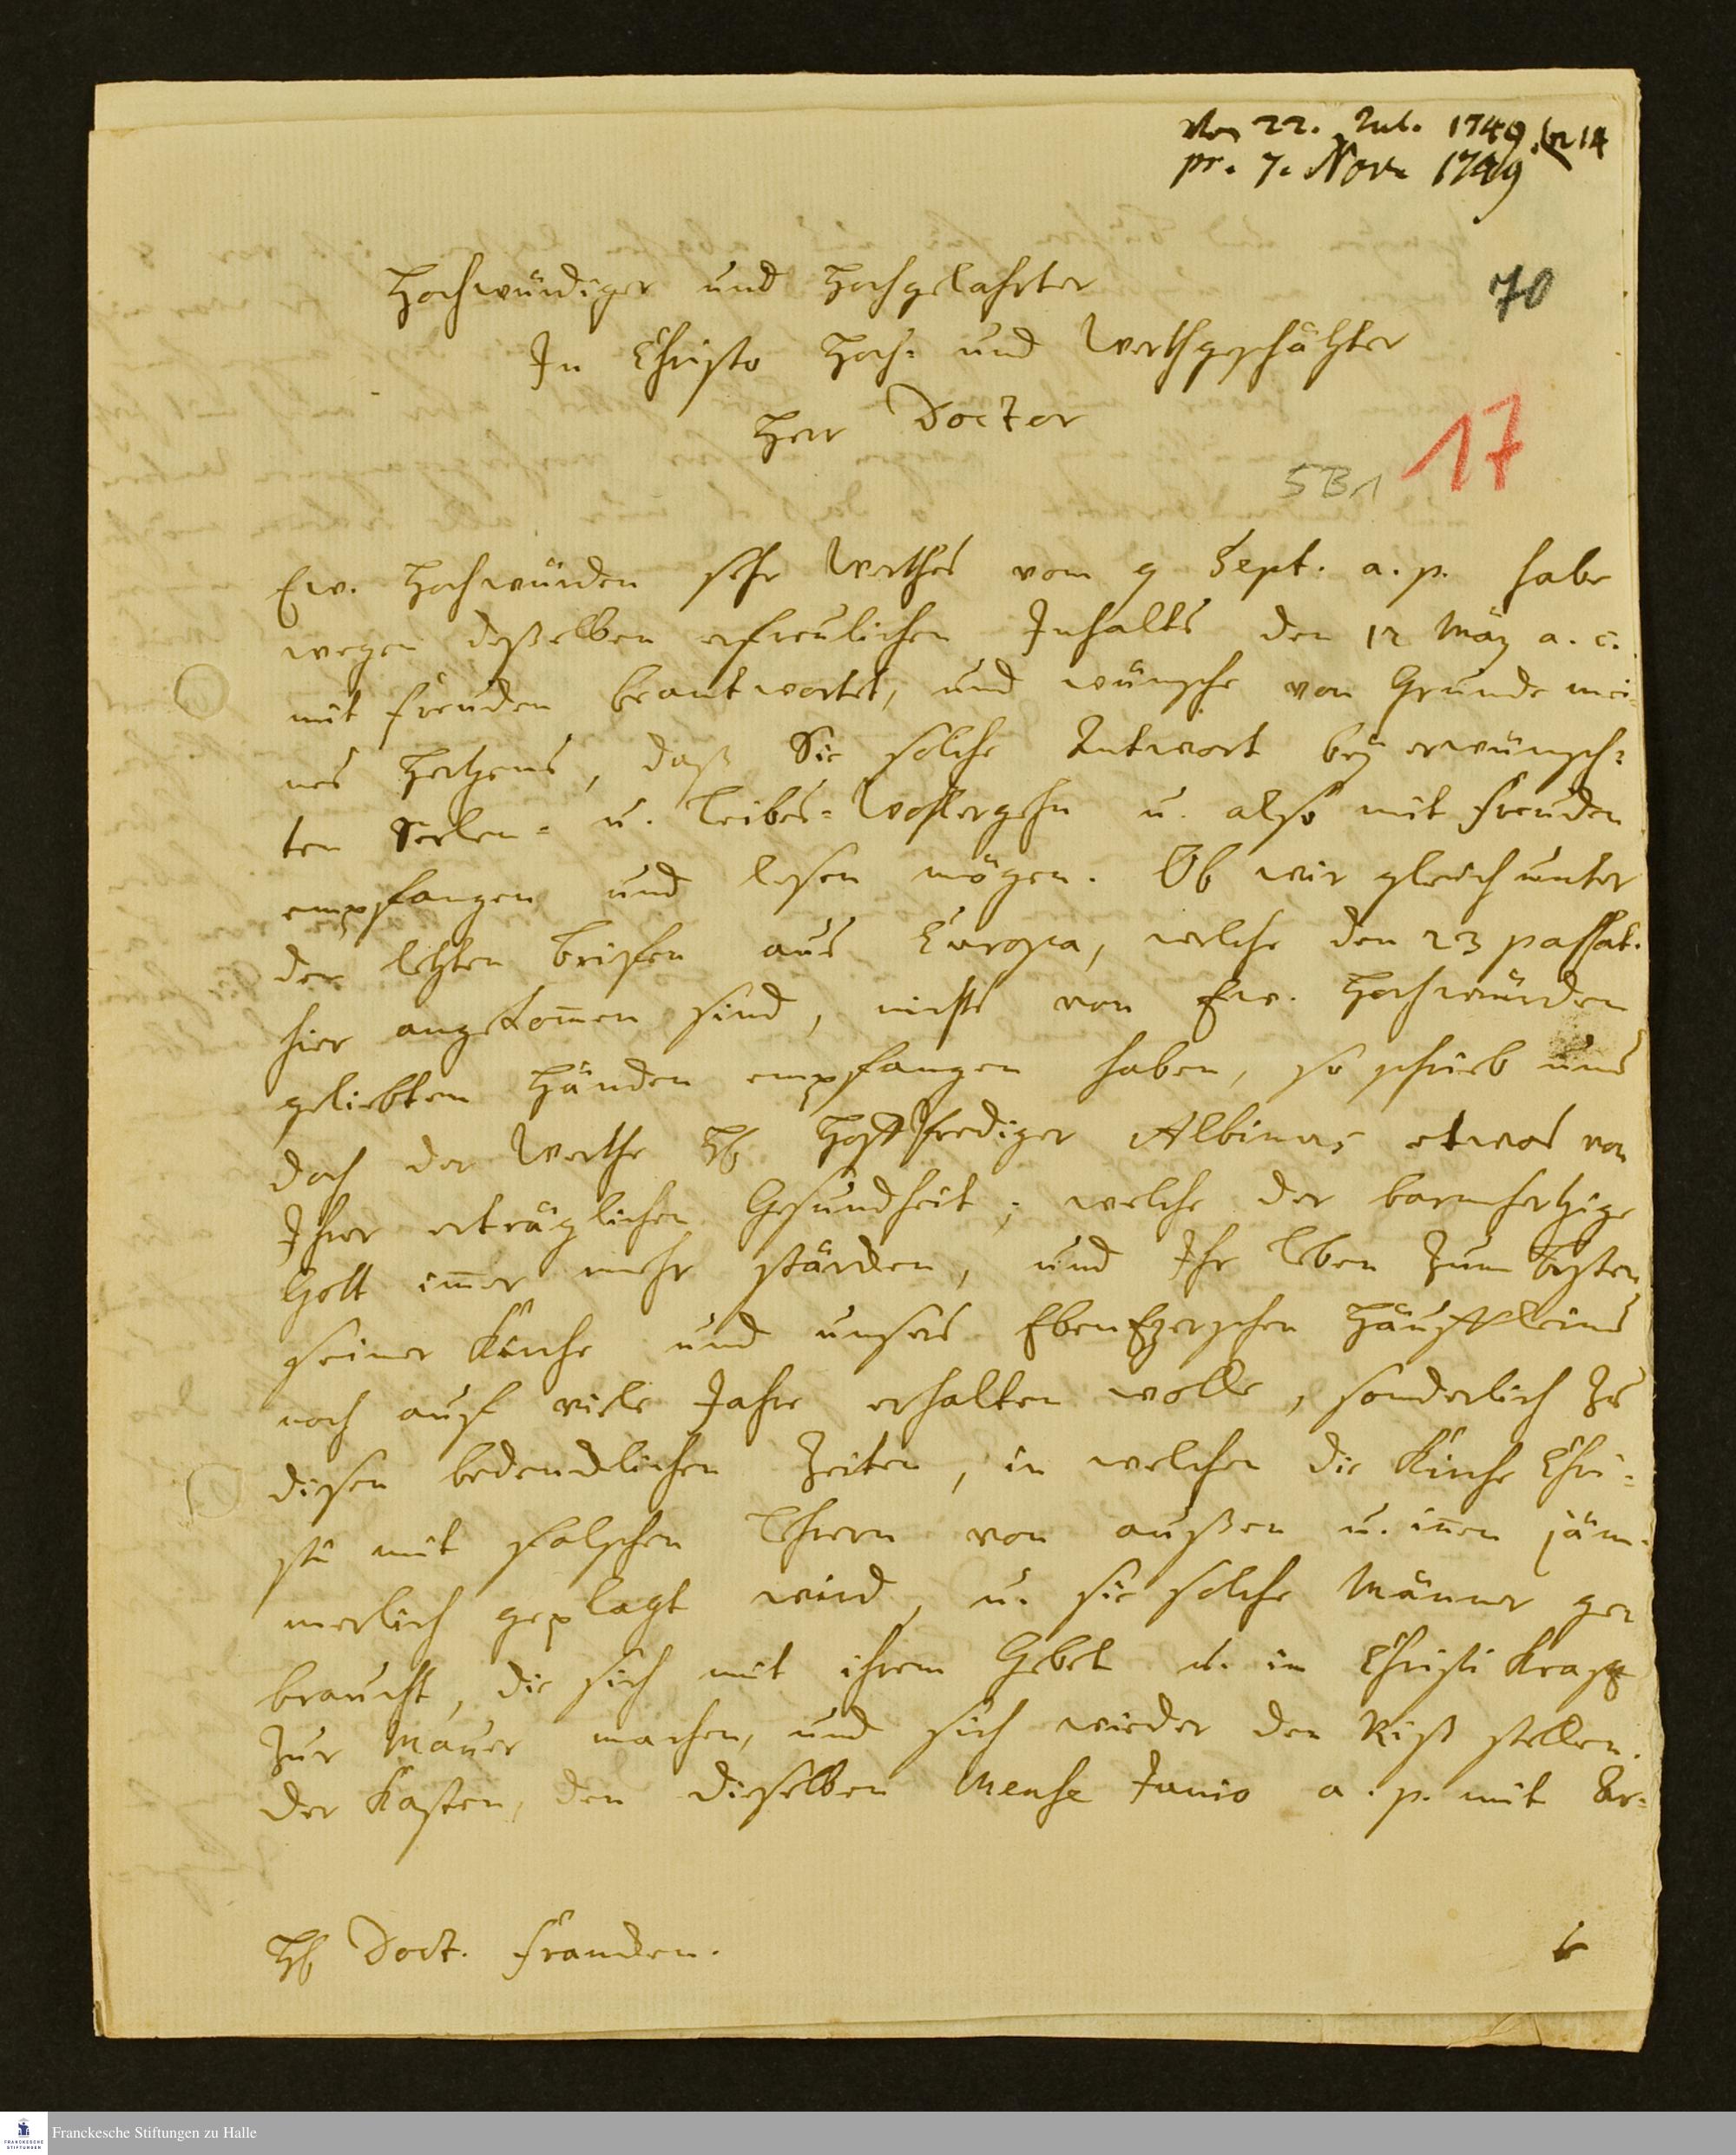 von 22. Jul. 1749. 14
pr. 7. Nov. 1749
70
Hochwürdiger und Hochgelahrter
In Christo Hoch- und Werthgeschätzter
Herr Doctor
17
5B1
Ew. Hochwürden sehr Werthes vom 9 Sept. a. p. habe
wegen deßelben erfreulichen Inhalts den 12 Märtz a. c.
mit Freuden beantwortet, und wünsche von Grunde mei-
nes Hertzens, daß Sie solche Antwort bey erwünsch-
ten Seelen- u. Leibes-Wohlergehn u. also mit Freuden
empfangen und lesen mögen. Ob wir gleich unter
den letzten Briefen aus Europa, welche den 23 passat.
hier angekom̄en sind, nichts von Ew. Hochwürden
geliebten Händen empfangen haben, so schrieb uns
doch der Werthe H. Hoffprediger Albinus etwas von
Ihrer erträglichen Gesundheit; welche der barmhertzige
Gott im̄er mehr stärcken, und Ihr Leben zum Besten
seiner Kirche und unsers Ebenezerschen Häuffleins
noch auf viele Jahre erhalten wolle, sonderlich zu
diesen bedencklichen Zeiten, in welchen die Kirche Chri-
sti mit falschen Lehrern von außen u. in̄en jäm-
merlich geplagt wird, u. sie solche Männer ge-
braucht, die sich mit ihrem Gebet u. in Christi Krafft
zur Mauer machen, und sich wieder den Riß stellen.
Der Kasten, den dieselben Mense Junio a. p. mit Ar-
H. Doct. Francken.